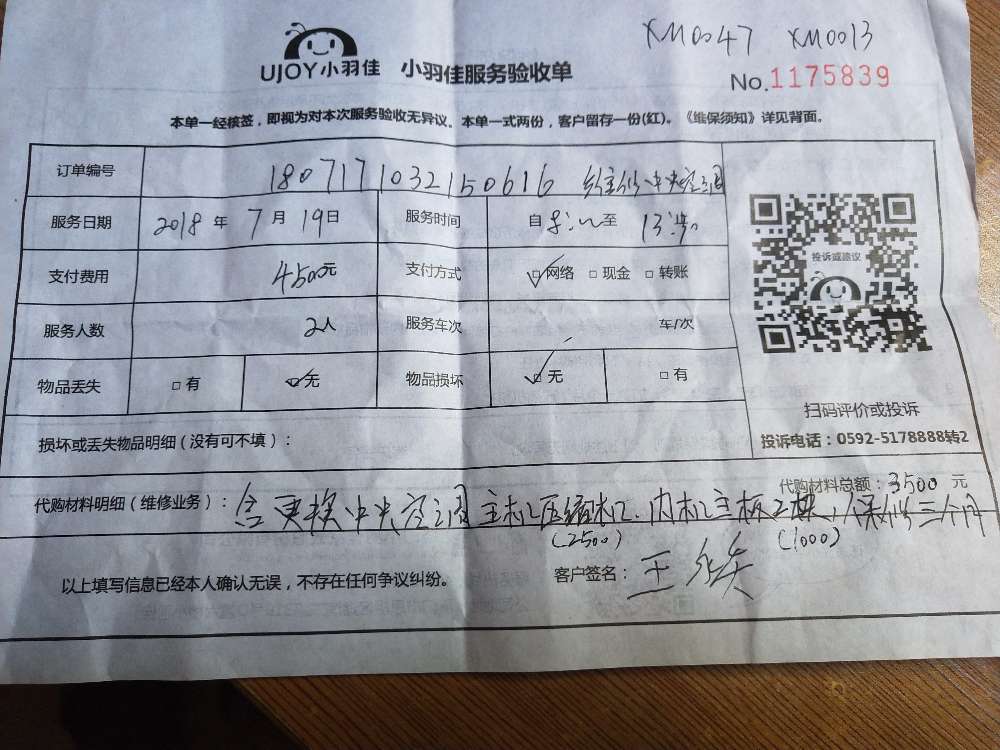 XM0047 XM0013
UJOY小羽佳 小羽佳服务验收单
No.1175839
本单一经核签，即视为对本次服务验收无异议。本单一式两份，客户留存一份(红)。《维保须知》详见背面。
订单编号 1807171032150616 维修中央空调
服务日期 2018 年 7 月 19 日 服务时间 自 至 13:
支付费用 4500元 支付方式 □网络 □现金 □转账
服务人数 2人 服务车次 车/次
物品丢失 □有 □无 物品损坏 □无 □有
投诉或建议
扫码评价或投诉
投诉电话：0592-5178888转2
损坏或丢失物品明细（没有可不填）：
代购材料总额：3500 元
代购材料明细（维修业务）：含更换中央空调主机压缩机、内机主板2块，保修三个月
(2500) (1000)
以上填写信息已经本人确认无误，不存在任何争议纠纷。
客户签名：王